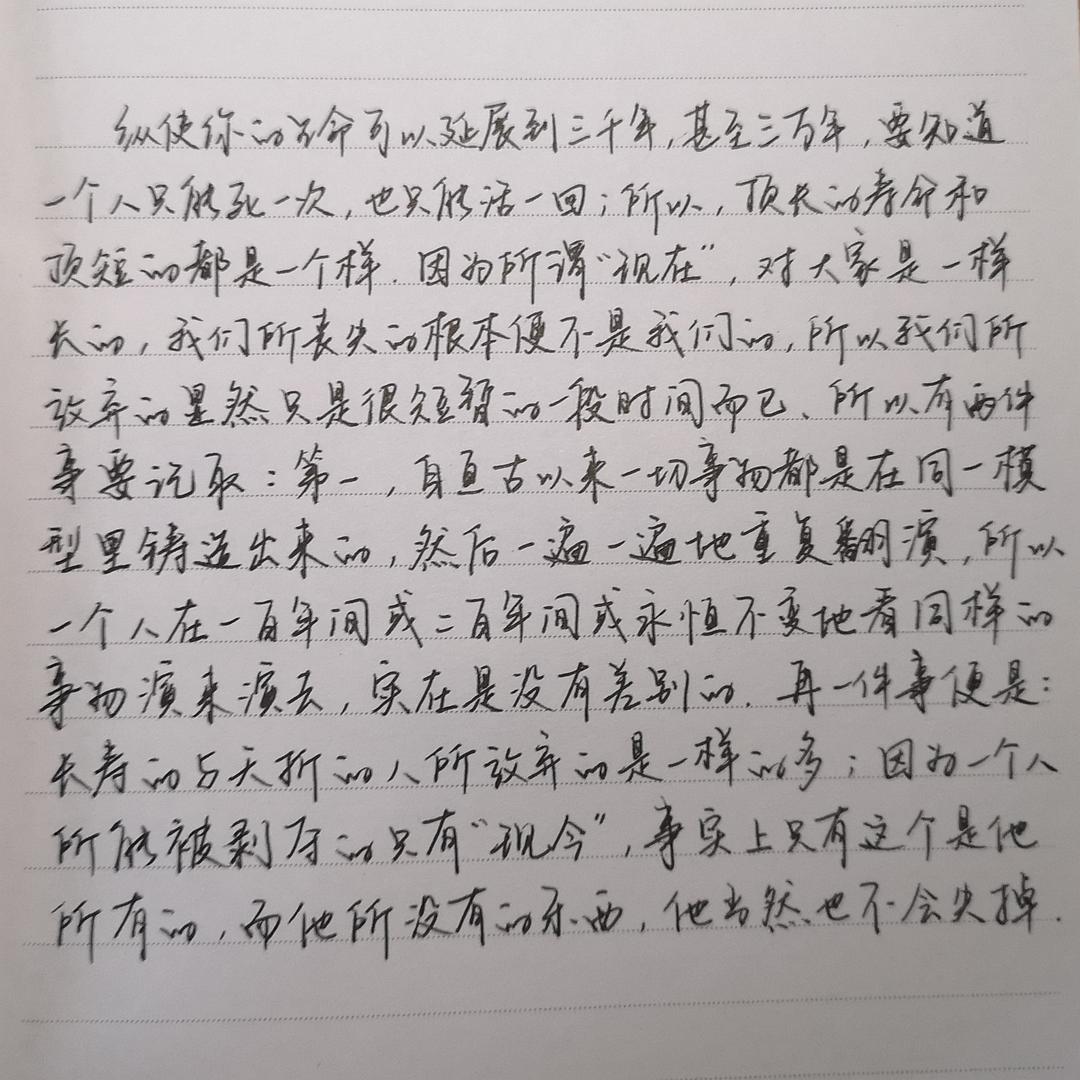 纵使你的生命可以延展到三千年,甚至三万年,要知道
一个人只能死一次,也只能活一回;所以,顶长的寿命和
顶短的都是一个样.因为所谓“现在”,对大家是一样
长的,我们所丧失的根本便不是我们的,所以我们所
放弃的显然只是很短暂的一段时间而已、所以有两件
事要记取:第一,自亘古以来一切事物都是在同一模
型里铸造出来的,然后一遍一遍地重复翻演,所以
一个人在一百年间或二百年间或永恒不变地看同样的
事物演来演去,实在是没有差别的.再一件事便是:
长寿的与夭折的人所放弃的是一样的多;因为一个人
所能被剥夺的只有“现今”,事实上只有这个是他
所有的,而他所没有的东西,他当然也不会失掉.